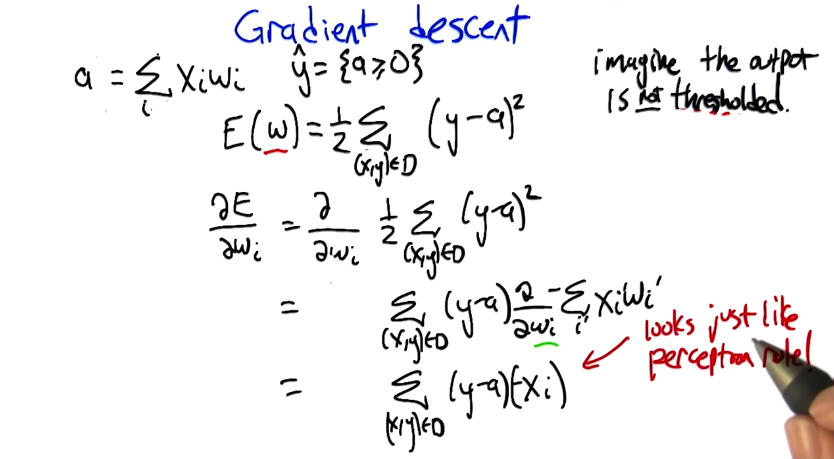 Gradient descent
a = Σ_i x_i w_i   ŷ = {a ≥ 0}
imagine the output
is not thresholded.
E(w) = 1/2 Σ_{(x,y)∈D} (y-a)²
∂E/∂w_i = ∂/∂w_i 1/2 Σ_{(x,y)∈D} (y-a)²
= Σ_{(x,y)∈D} (y-a) ∂/∂w_i -Σ_{i'} x_i w_i'
looks just like
perceptron rule!
= Σ_{(x,y)∈D} (y-a)(-x_i)